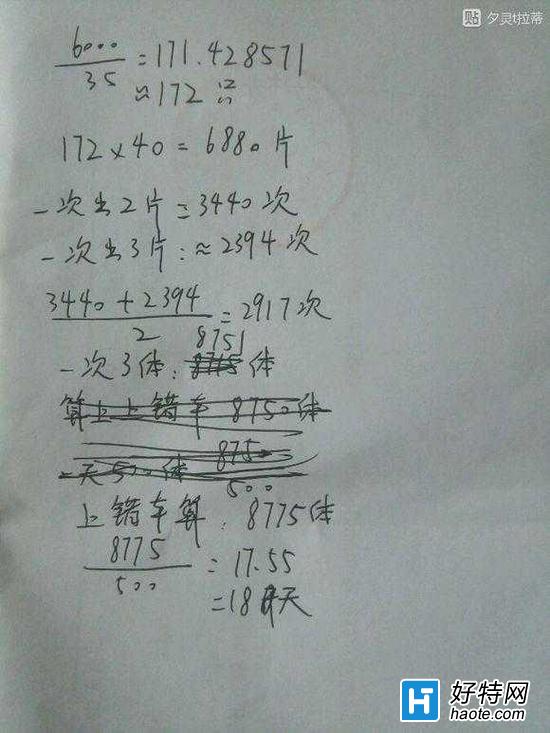 贴 夕灵t拉蒂
6000/35 = 171.428571
≈172
172×40 = 6880片
一次出2片 = 3440次
一次出3片:≈2394次
(3440+2394)/2 = 2917次
8751
一次3体: 体
算上上错车 8750体
875
一天500体
500
上错车算:8775体
8775/500 = 17.55
=18天
好特网
haote.com